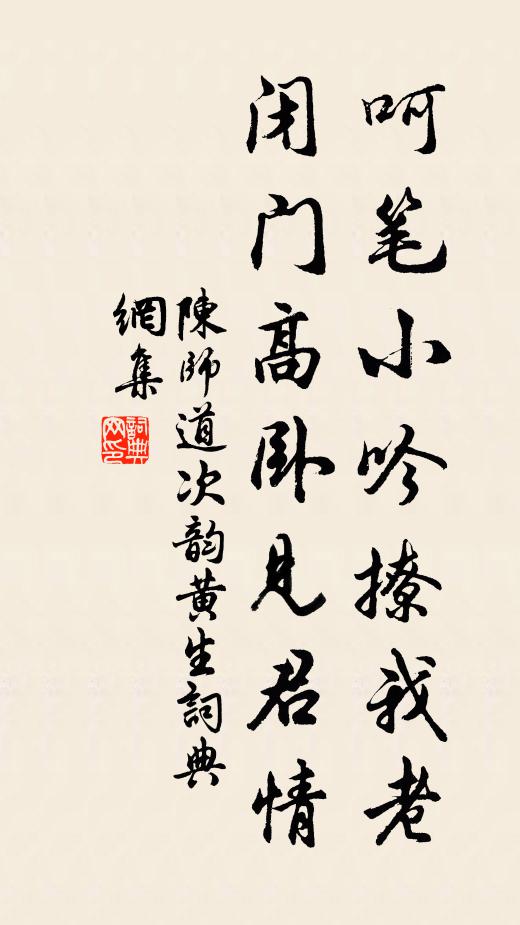 呵笔小吟撩我老
闭门高卧见君情
陳師道次韵黄生詞典
網集
詞典
网印